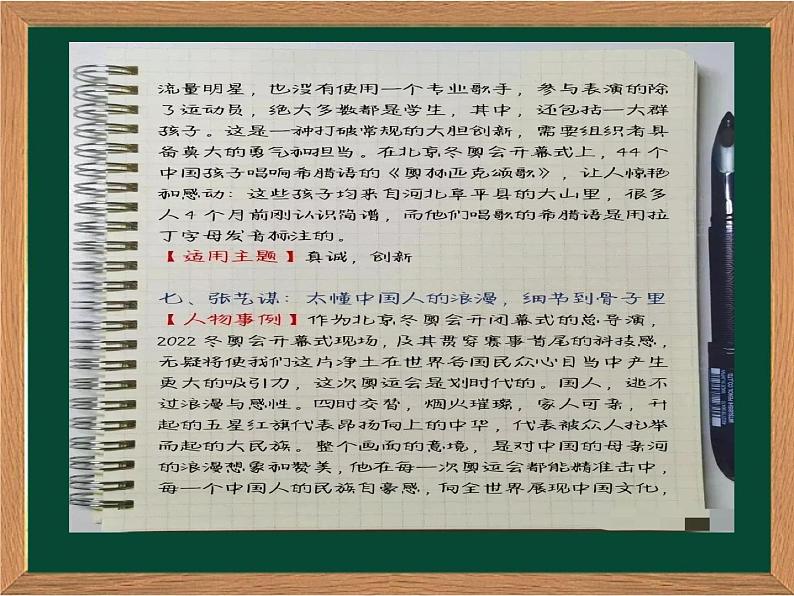 流量明星，也没有使用一个专业歌手，参与表演的除
了运动员，绝大多数都是学生，其中，还包括一大群
孩子。这是一种打破常规的大胆创新，需要组织者具
备莫大的勇气和担当。在北京冬奥会开幕式上，44个
中国孩子唱响希腊语的《奥林匹克颂歌》，让人惊艳
和感动：这些孩子均来自河北阜平县的大山里，很多
人4个月前刚认识简谱，而他们唱歌的希腊语是用拉
丁字母发音标注的。
【适用主题】真诚，创新
七、张艺谋：太懂中国人的浪漫，细节到骨子里
【人物事例】作为北京冬奥会开闭幕式的总导演，
2022冬奥会开幕式现场，及其贯穿赛事首尾的科技感，
无疑将使我们这片净土在世界各国民众心目当中产生
更大的吸引力，这次奥运会是划时代的。国人，逃不
过浪漫与感性。四时交替，烟火璀璨，家人可亲，升
起的五星红旗代表昂扬向上的中华，代表被众人托举
而起的大民族。整个画面的意境，是对中国的母亲河
的浪漫想象和赞美，他在每一次奥运会都能精准击中，
每一个中国人的民族自豪感，向全世界展现中国文化，